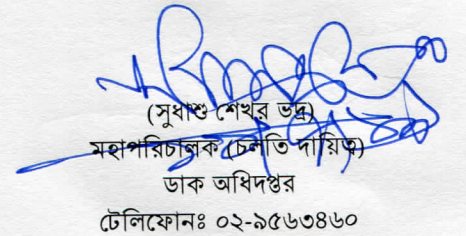 (সুধাংশু শেখর ভদ্র)
মহাপরিচালক (চলতি দায়িত্ব)
ডাক অধিদপ্তর
টেলিফোনঃ ০২-৯৫৬৩৪৬০